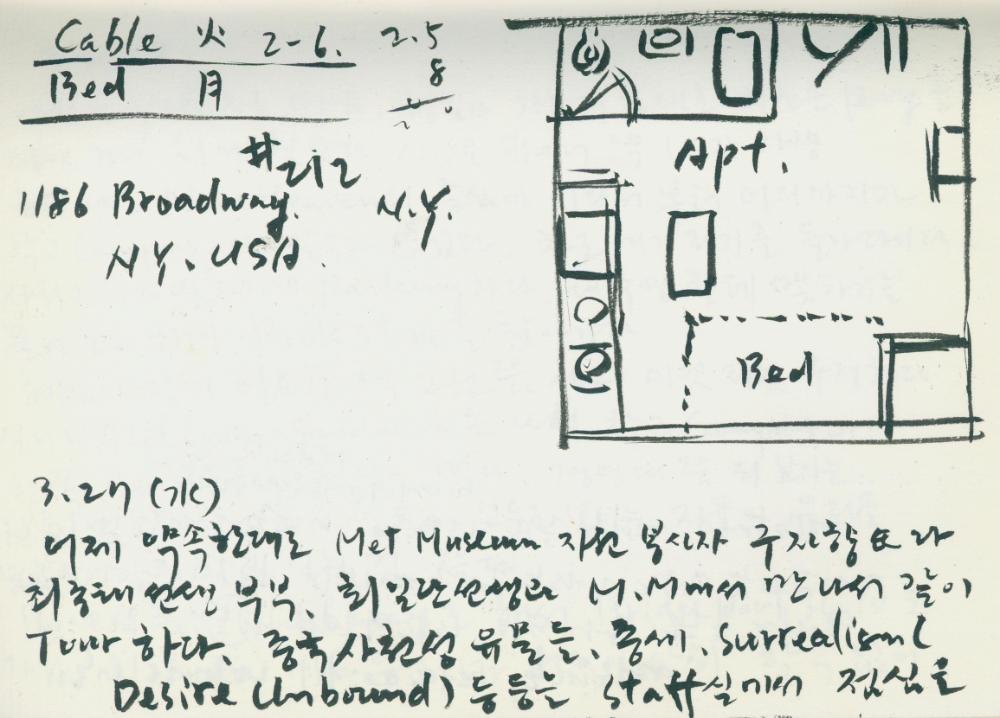 Cable 火 2-6. 2.5
Bed 月 8
#212
1186 Broadway. N.Y.
N.Y. USA.
Apt.
Bed
3.27 (水)
어제 약속한대로 Met Museum 자원 봉사자 주지향 또 과
최국태 선생 부부 최일단선생과 M.M에서 만나서 같이
Tour 하다. 중국 사천성 유물들, 중세, Surrealism (
Desire Unbound) 등등 staff실에서 점심을